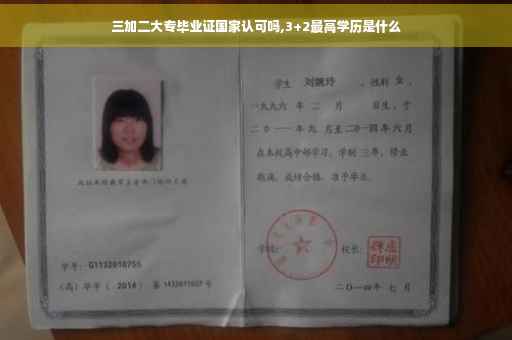 三加二大专毕业证国家认可吗,3+2最高学历是什么
学生 刘婉玲 ,性别 女 ,
一九九六 年 二 月 日生,于
二〇一一年九 月至二〇一四年六月
在本校高中部学习,学制 三年,修业
期满,成绩合格,准予毕业。
学号: G1132010755
学校: 校长:
(高)毕字( 2014 )第 1432011027 号
二〇一四年 七 月